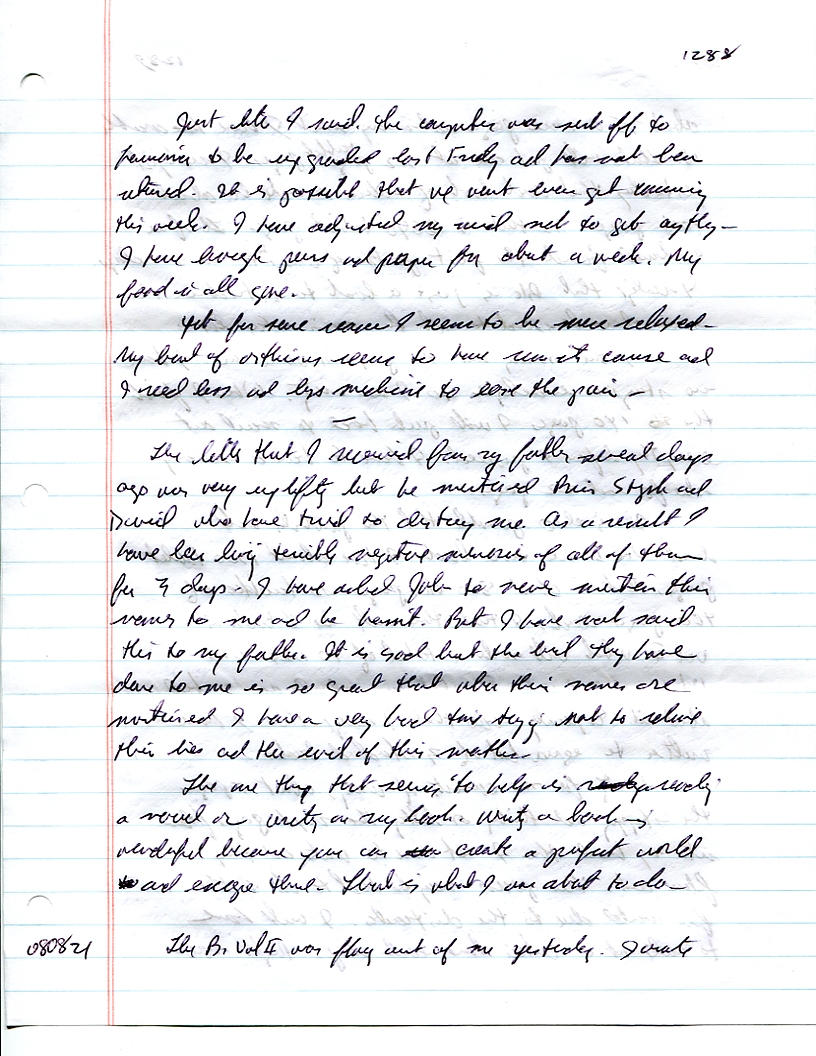 1288
Just like I said. The computer was sent off to
to be upgraded last Friday and has not been
returned. It is possible that we won't even get running
this week. I have adjusted my mind set to get anything —
I have enough pens and paper for about a week. My
food is all gone.
Yet for some reason I seem to be more relaxed —
My bout of arthritis seems to have run its course and
I need less and less medicine to ease the pain —
The letter that I received from my father several days
ago was very uplifting but he mentioned and
David who have tried to destroy me. As a result I
have been having terrible negative memories of all of them
for 3 days. I have asked John to never mention their
names to me and he hasn't. But I have not said
this to my father. It is sad but the evil they have
done to me is so great that when their names are
mentioned I have a very hard time trying not to relive
their lies and the evil of this mother.
The one thing that seems to help is reading
a novel or writing on my book. Writing a book is
wonderful because you can create a perfect world
and escape there. That is what I am about to do —
080821 The Vol II was out of me yesterday. I wrote